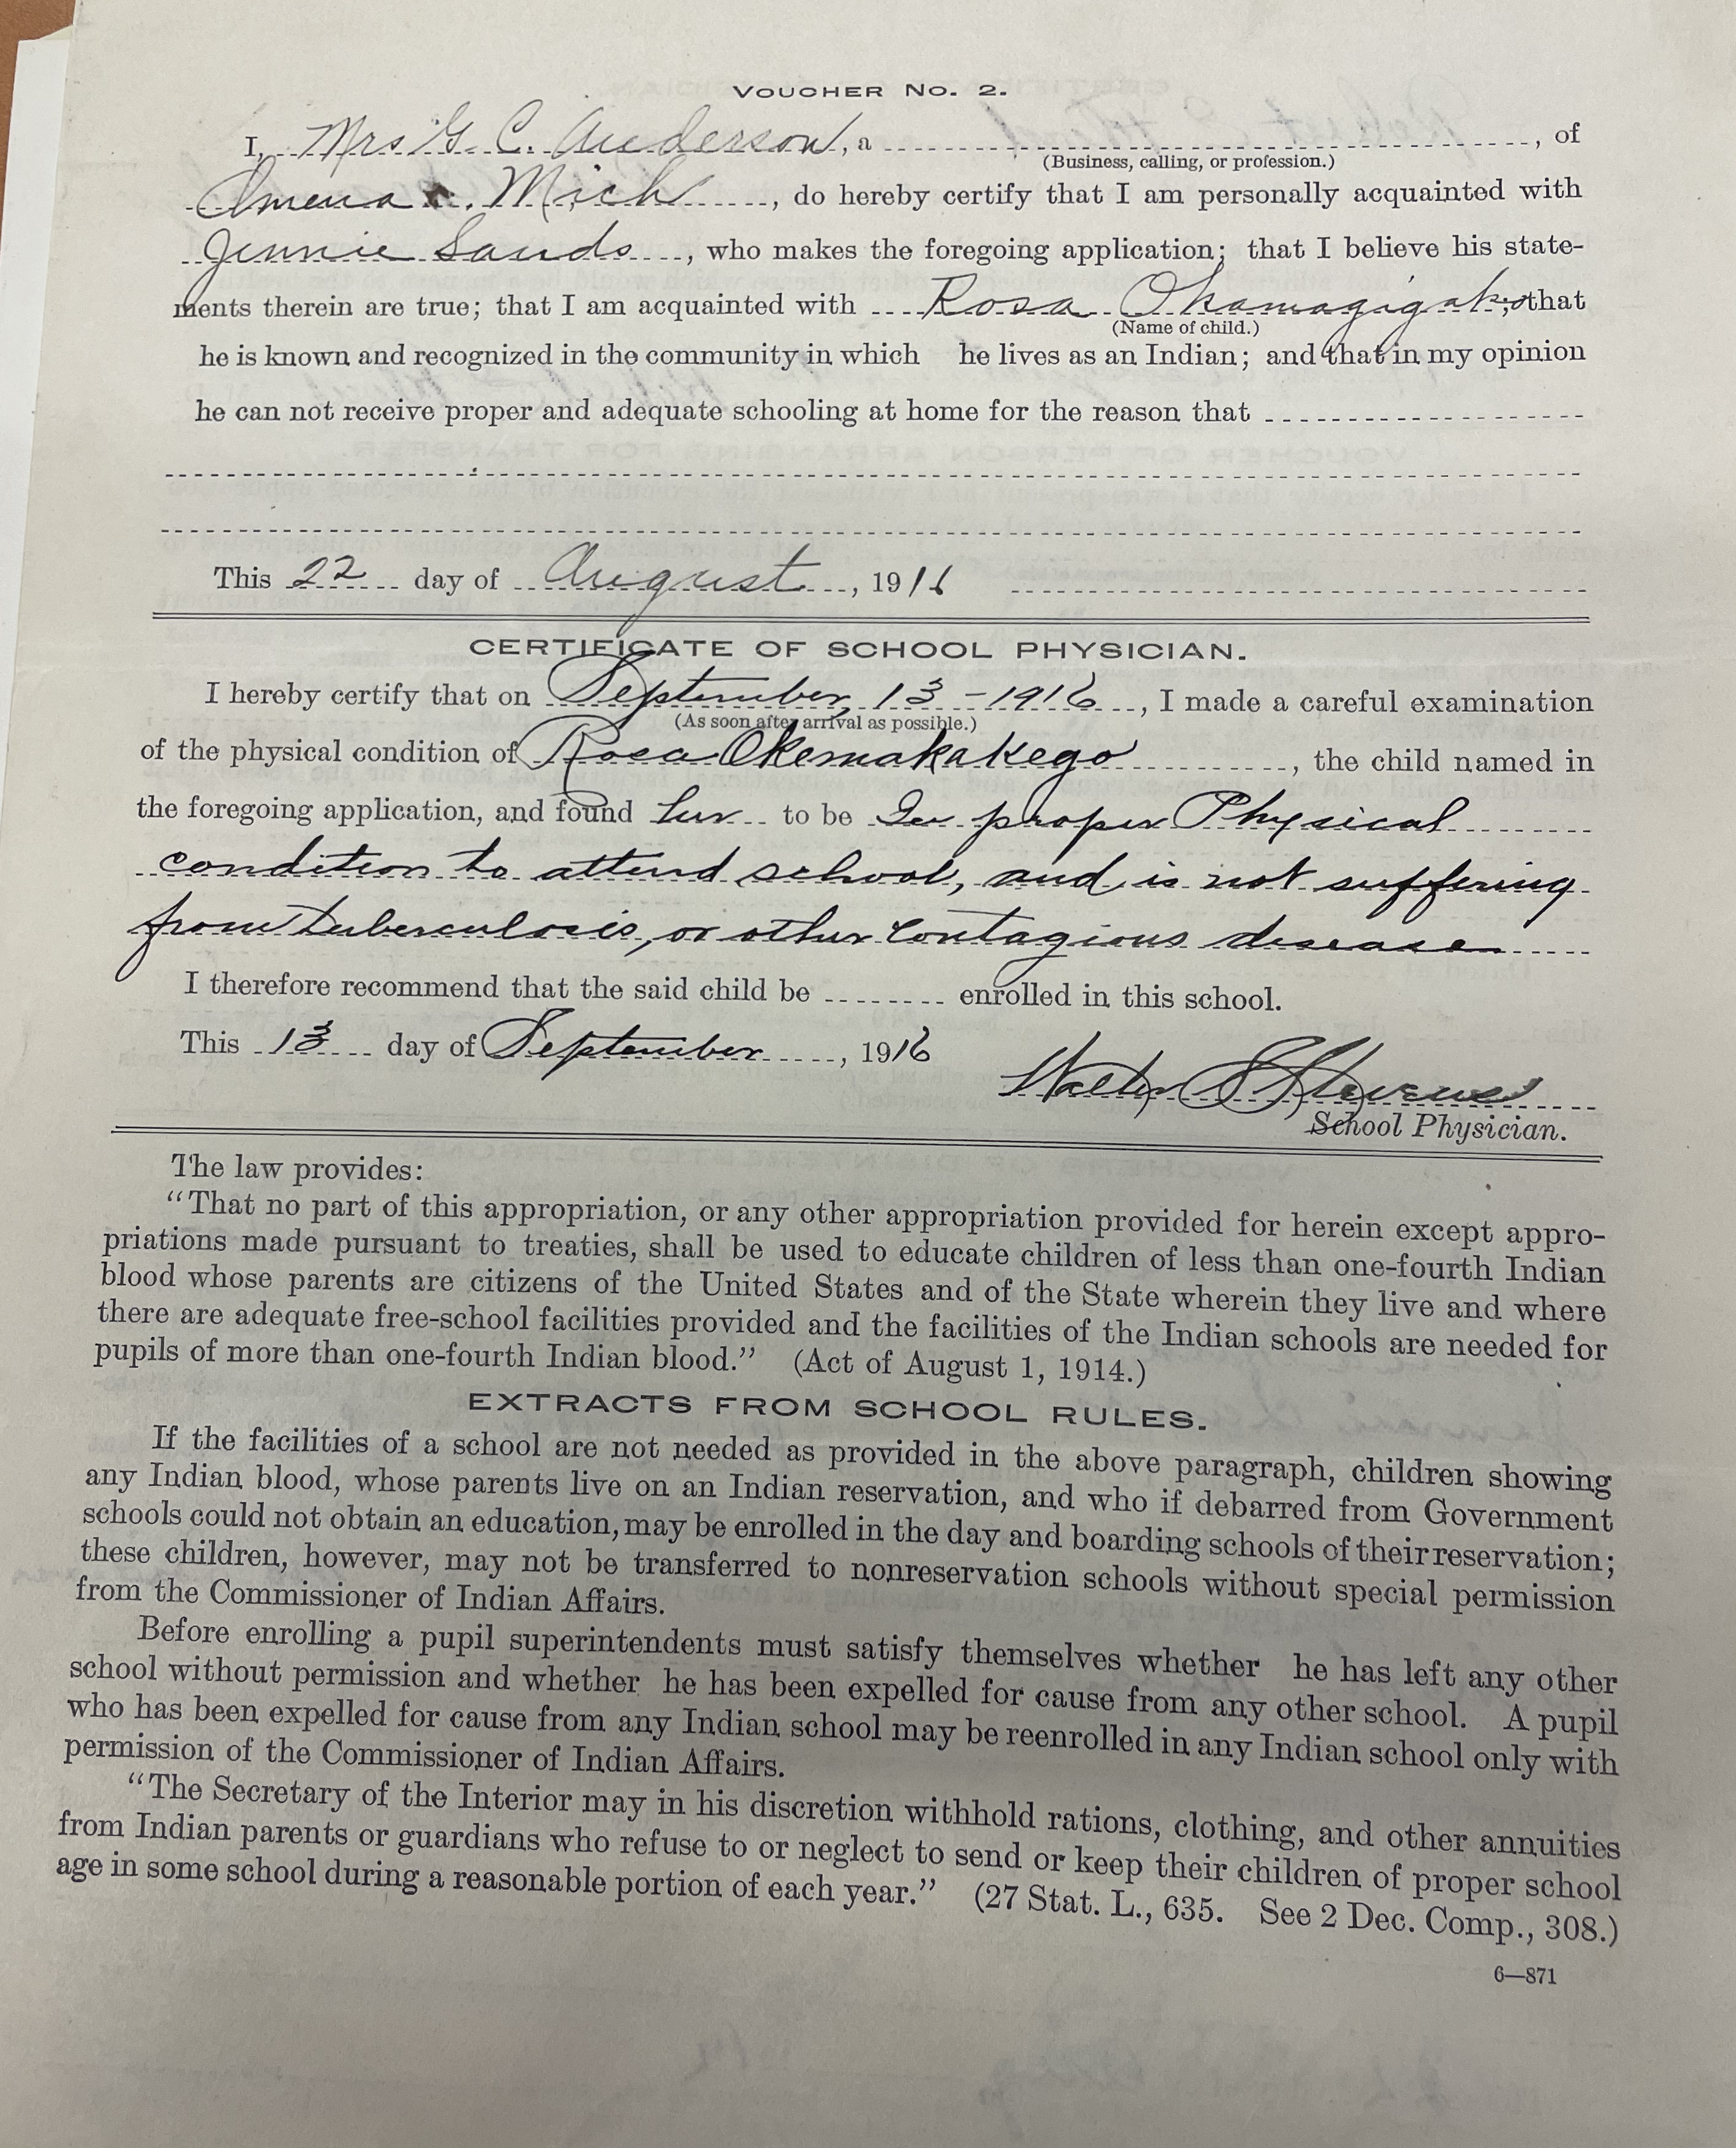 VOUCHER No. 2.
I, Mrs G. C. Anderson, a , of
(Business, calling, or profession.)
Omena Mich , do hereby certify that I am personally acquainted with
Jennie Sands , who makes the foregoing application; that I believe his state-
ments therein are true; that I am acquainted with Rosa ; that
(Name of child.)
he is known and recognized in the community in which he lives as an Indian; and that in my opinion
he can not receive proper and adequate schooling at home for the reason that
This 22 day of August , 1916
CERTIFICATE OF SCHOOL PHYSICIAN.
I hereby certify that on September 13 - 1916 , I made a careful examination
(As soon after arrival as possible.)
of the physical condition of Rosa Okemakakego , the child named in
the foregoing application, and found her to be In proper Physical
condition to attend school, and is not suffering
from tuberculosis, or other contagious disease
I therefore recommend that the said child be enrolled in this school.
This 13 day of September , 1916
Walter S Stevens
School Physician.
The law provides:
“That no part of this appropriation, or any other appropriation provided for herein except appro-
priations made pursuant to treaties, shall be used to educate children of less than one-fourth Indian
blood whose parents are citizens of the United States and of the State wherein they live and where
there are adequate free-school facilities provided and the facilities of the Indian schools are needed for
pupils of more than one-fourth Indian blood.” (Act of August 1, 1914.)
EXTRACTS FROM SCHOOL RULES.
If the facilities of a school are not needed as provided in the above paragraph, children showing
any Indian blood, whose parents live on an Indian reservation, and who if debarred from Government
schools could not obtain an education, may be enrolled in the day and boarding schools of their reservation;
these children, however, may not be transferred to nonreservation schools without special permission
from the Commissioner of Indian Affairs.
Before enrolling a pupil superintendents must satisfy themselves whether he has left any other
school without permission and whether he has been expelled for cause from any other school. A pupil
who has been expelled for cause from any Indian school may be reenrolled in any Indian school only with
permission of the Commissioner of Indian Affairs.
“The Secretary of the Interior may in his discretion withhold rations, clothing, and other annuities
from Indian parents or guardians who refuse to or neglect to send or keep their children of proper school
age in some school during a reasonable portion of each year.” (27 Stat. L., 635. See 2 Dec. Comp., 308.)
6—871